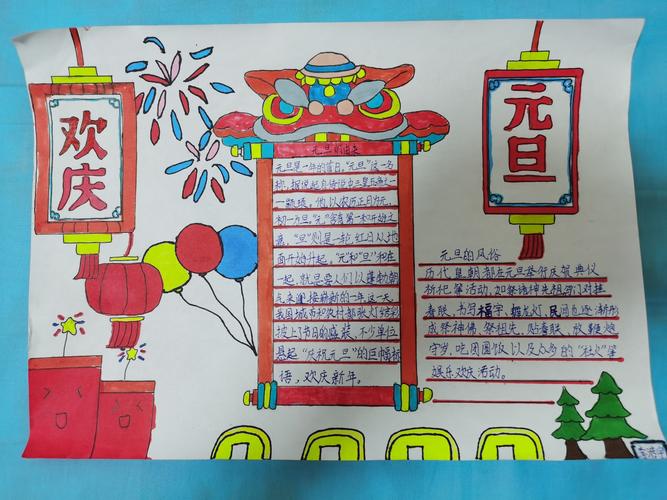 欢庆
元旦
元旦的由来
元旦是一年的首日，"元旦"这一名
称，据说起自传说中三皇五帝之一
一颛顼，他以农历正月为元，
初一为旦。"元"含有第一和开始之
意，"旦"则是一轮红日从地
面开始升起，"元"和"旦"和在
一起，就是要人们以蓬勃朝
气来迎接崭新的一年这一天，
我国城市和农村都张灯结彩
披上节日的盛装，不少单位
悬起"庆祝元旦"的巨幅标
语，欢庆新年。
元旦的风俗
历代皇朝都在元旦举行庆贺典仪
祈祀等活动，如祭诸神先祖，写门对挂
春联，书写福字、舞龙灯，民间也逐渐形
成祭神佛、祭祖先、贴春联、放鞭炮
守岁、吃团圆饭以及众多的"社火"等
娱乐欢庆活动。